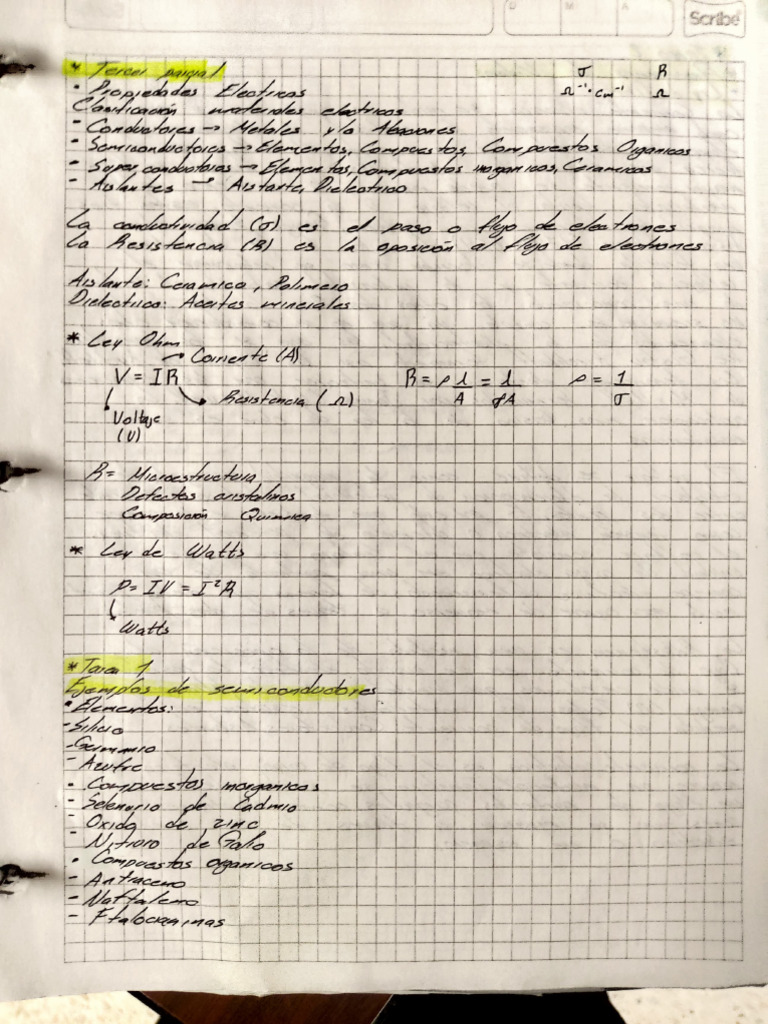 Scribe
D M A
* Tercer parcial
σ R
• Propiedades Electricas
Ω⁻¹·cm⁻¹ Ω
Clasificación materiales electricos
- Conductores → Metales y/o Aleaciones
- Semiconductores → Elementos, Compuestos, Compuestos Organicos
- Super conductores → Elementos, Compuestos inorganicos, Ceramicos
- Aislantes → Aislante, Dielectrico
La conductividad (σ) es el paso o flujo de electrones
La Resistencia (R) es la oposición al flujo de electrones
Aislante: Ceramica, Polimero
Dielectrico: Aceites minerales
* Ley Ohm
→ Corriente (A)
V = IR
R = ρ l/A = l/σA ρ = 1/σ
Resistencia (Ω)
Voltaje
(V)
R= Microestructura
Defectos cristalinos
Composición Quimica
* Ley de Watts
P= IV = I²R
Watts
* Tarea 1
Ejemplos de semiconductores
• Elementos:
- Silicio
- Germanio
- Azufre
• Compuestos inorganicos
- Selenuro de Cadmio
- Oxido de zinc
- Nitruro de Galio
• Compuestos organicos
- Antraceno
- Naftaleno
- Ftalocianinas